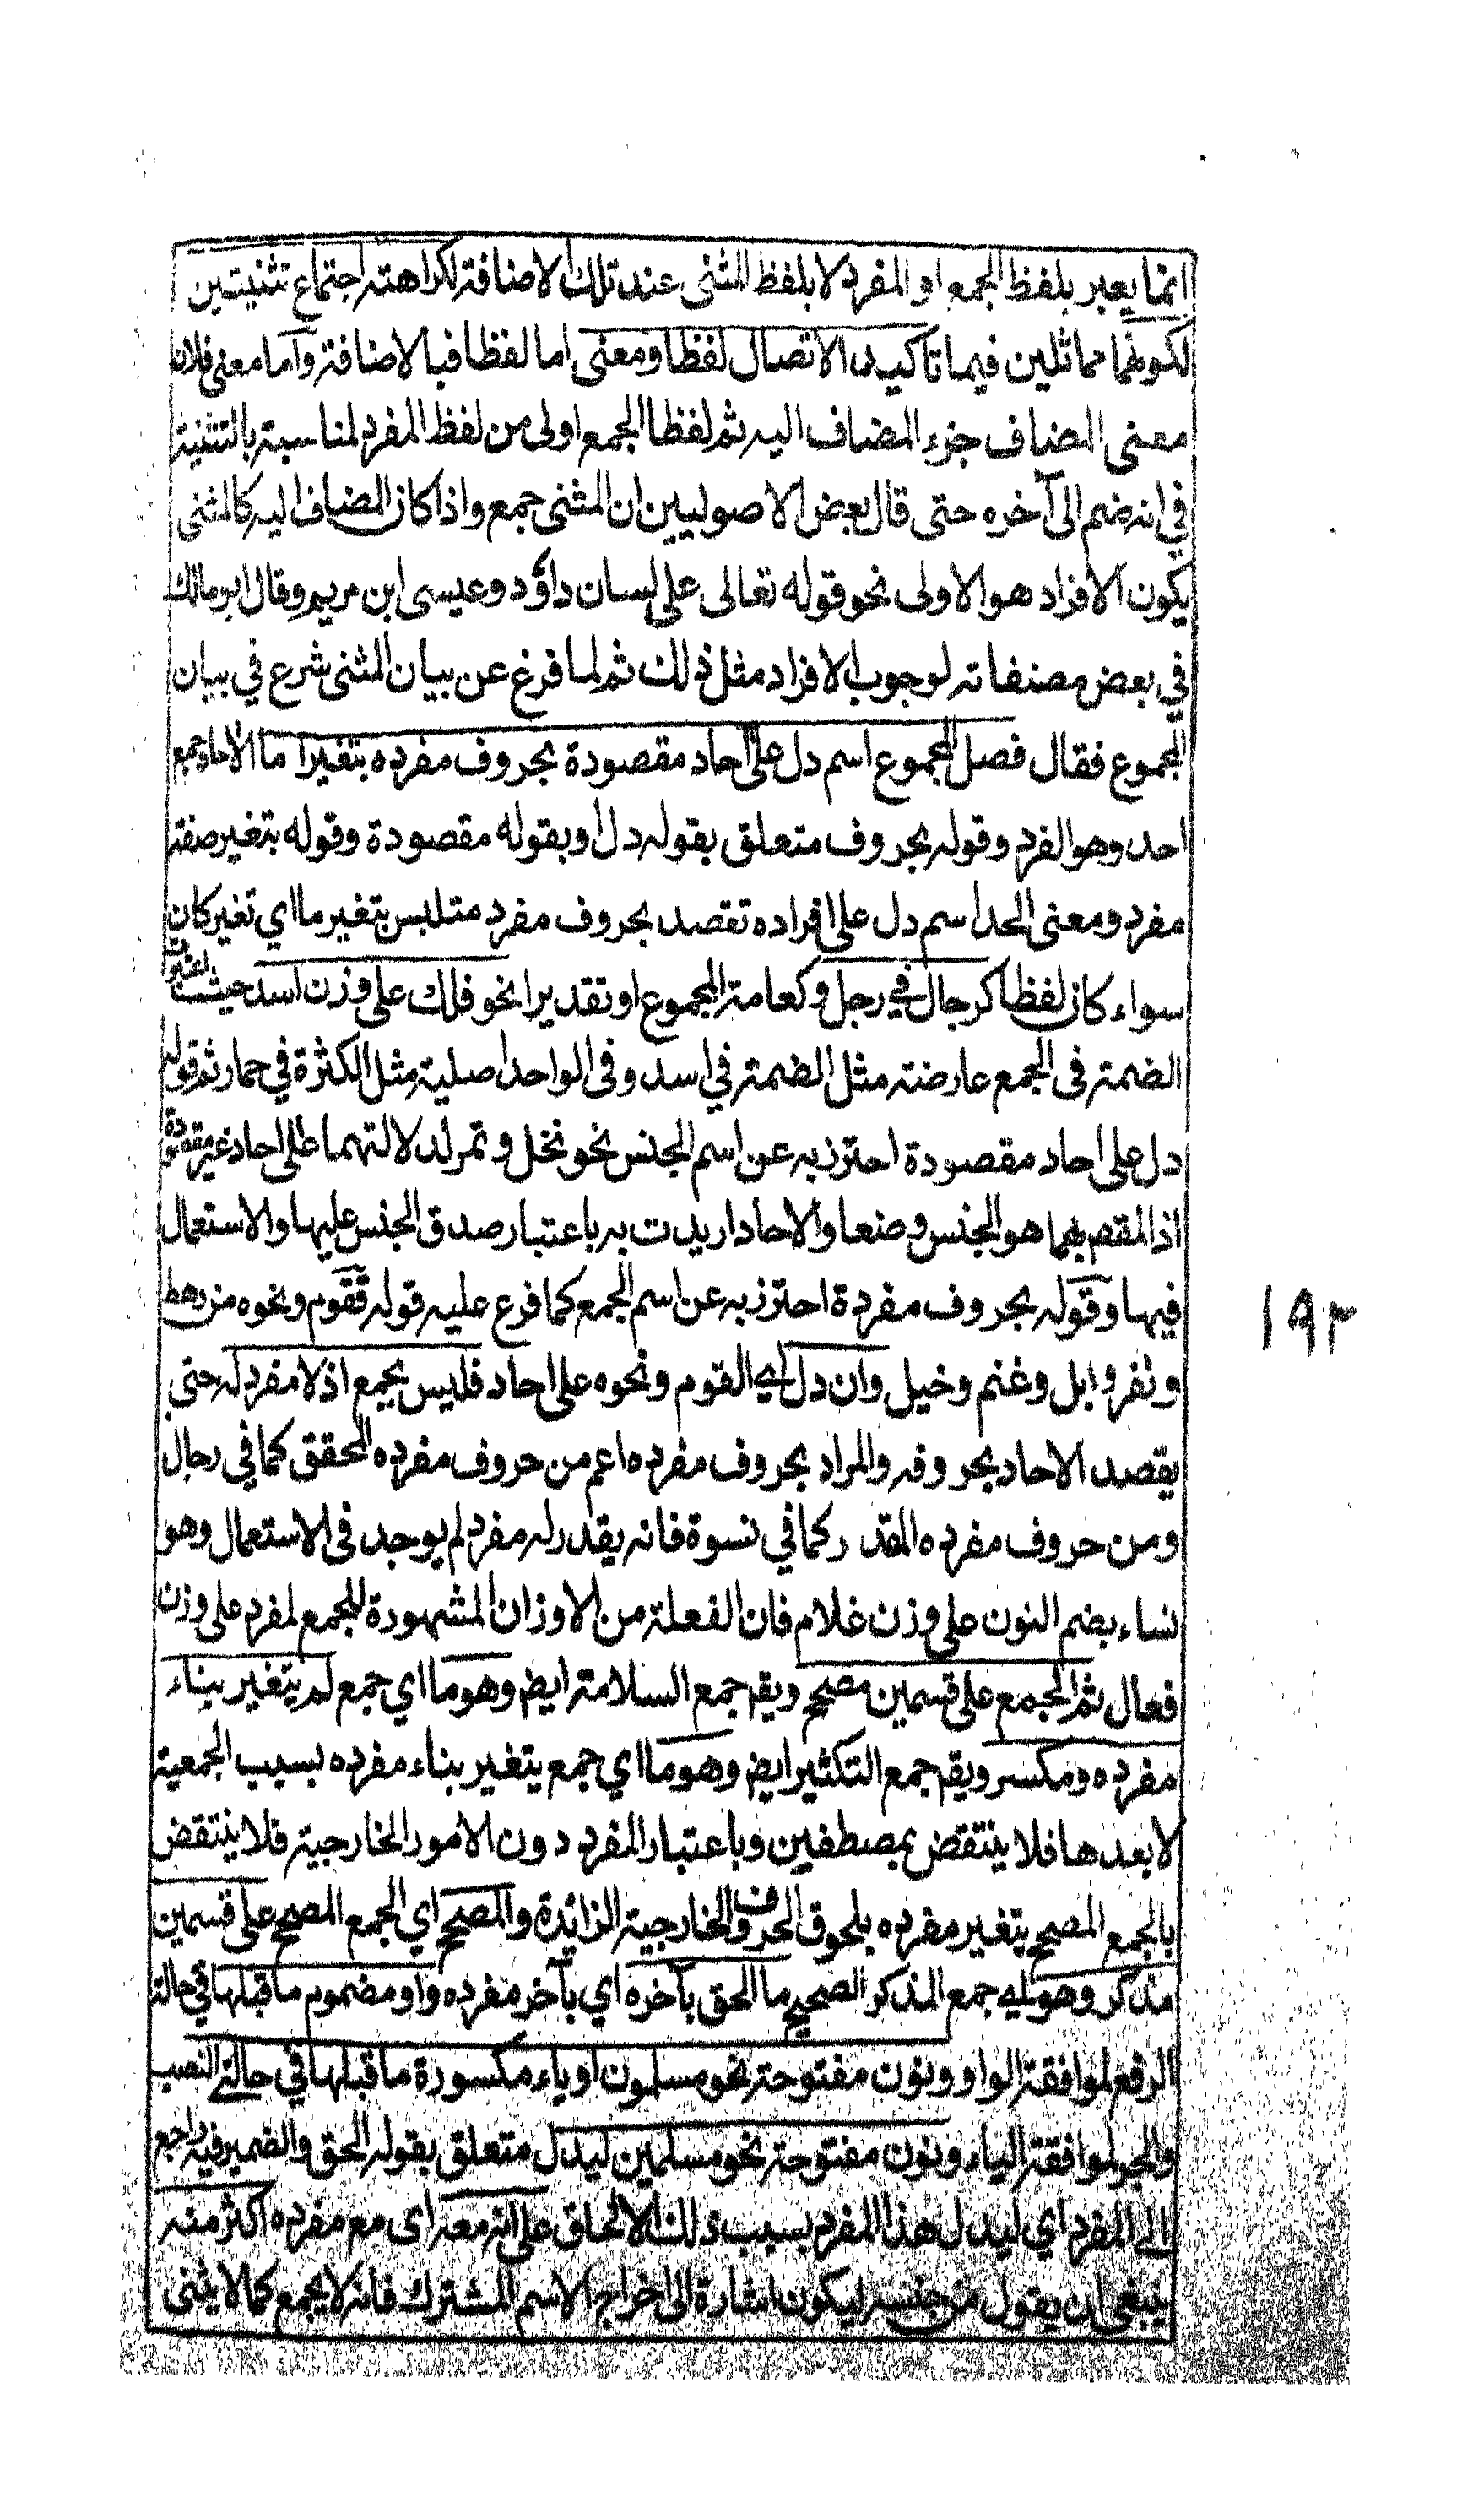 انما يعبر بلفظ الجمع او المفرد لا بلفظ المثنى عند تلك الاضافة لكراهته اجتماع تثنيتين
لكونهما مماثلين فيما تأكيد الاتصال لفظا ومعنى اما لفظا فبالاضافة واما معنى فلان
معنى المضاف جزء المضاف اليه ثم لفظ الجمع اولى من لفظ المفرد لمناسبة بالتثنية
في انه ضم الى آخره حتى قال بعض الاصوليين ان المثنى جمع واذا كان المضاف اليه كالمثنى
يكون الافراد هو الاولى نحو قوله تعالى على لسان داؤد وعيسى ابن مريم وقال ابن مالك
في بعض مصنفاته لوجوب الافراد مثل ذلك ثم لما فرغ عن بيان المثنى شرع في بيان
المجموع فقال فصل المجموع اسم دل على احاد مقصودة بحروف مفرده بتغير ما الاحاد جمع
احد وهو الفرد وقوله بحروف متعلق بقوله دل او بقوله مقصودة وقوله بتغير صفة
مفرد ومعنى الحد اسم دل على افراده تقصد بحروف مفرد متلبس بتغير ما اي تغير كان
سواء كان لفظا كرجال في رجل وكعامة المجموع او تقديرا نحو فلك على وزن اسد حيث اعتبرت
الضمة فى الجمع عارضته مثل الضمة في اسد وفى الواحد اصلية مثل الكثرة في حمار ثم قوله
دل على احاد مقصودة احترز به عن اسم الجنس نحو نخل وتمر لدلالتهما على احاد غير مقصودة
اذ المقصـ بهما هو الجنس وضعا والاحاد اريدت به باعتبار صدق الجنس عليها والاستعمال
فيها وقوله بحروف مفردة احترز به عن اسم الجمع كما فرع عليه قوله فقوم ونحوه من رهط
ونفر وابل وغنم وخيل وان دل اي القوم ونحوه على احاد فليس بجمع اذ لا مفرد له حتى
يقصد الاحاد بحروفه والمراد بحروف مفرده اعم من حروف مفرده المحقق كما في رجال
ومن حروف مفرده المقدر كما في نسوة فانه يقدر له مفرد لم يوجد فى الاستعمال وهو
نساء بضم النون على وزن غلام فان الفعلة من الاوزان المشهورة للجمع لمفرد على وزن
فعال ثم الجمع على قسمين مصحح ويقـ جمع السلامة ايضـ وهو ما اي جمع لم يتغير بناء
مفرده ومكسر ويقـ جمع التكثير ايضـ وهو ما اي جمع يتغير بناء مفرده بسبب الجمعية
لا بعدها فلا ينتقض بمصطفين وباعتبار المفرد دون الامور الخارجية فلا ينتقض
بالجمع المصحح بتغير مفرده بلحوق الحروف الخارجية الزائدة والمصحح اي الجمع المصحح على قسمين
مذكر وهو اي جمع المذكر الصحيح ما الحق بآخره اي بآخر مفرده واو مضموم ما قبلها في حالة
الرفع لموافقة الواو ونون مفتوحة نحو مسلمون او ياء مكسورة ما قبلها في حالتي النصب
والجر لموافقة الياء ونون مفتوحة نحو مسلمين ليدل متعلق بقوله الحق والضمير فيه راجع
الى المفرد اي ليدل هذا المفرد بسبب ذلك الالحاق على انه معه اى مع مفرده اكثر منه
ينبغي ان يقول من جنسه ليكون اشارة الى اخراج الاسم المشترك فانه لا يجمع كما لا يثنى
١٩٢